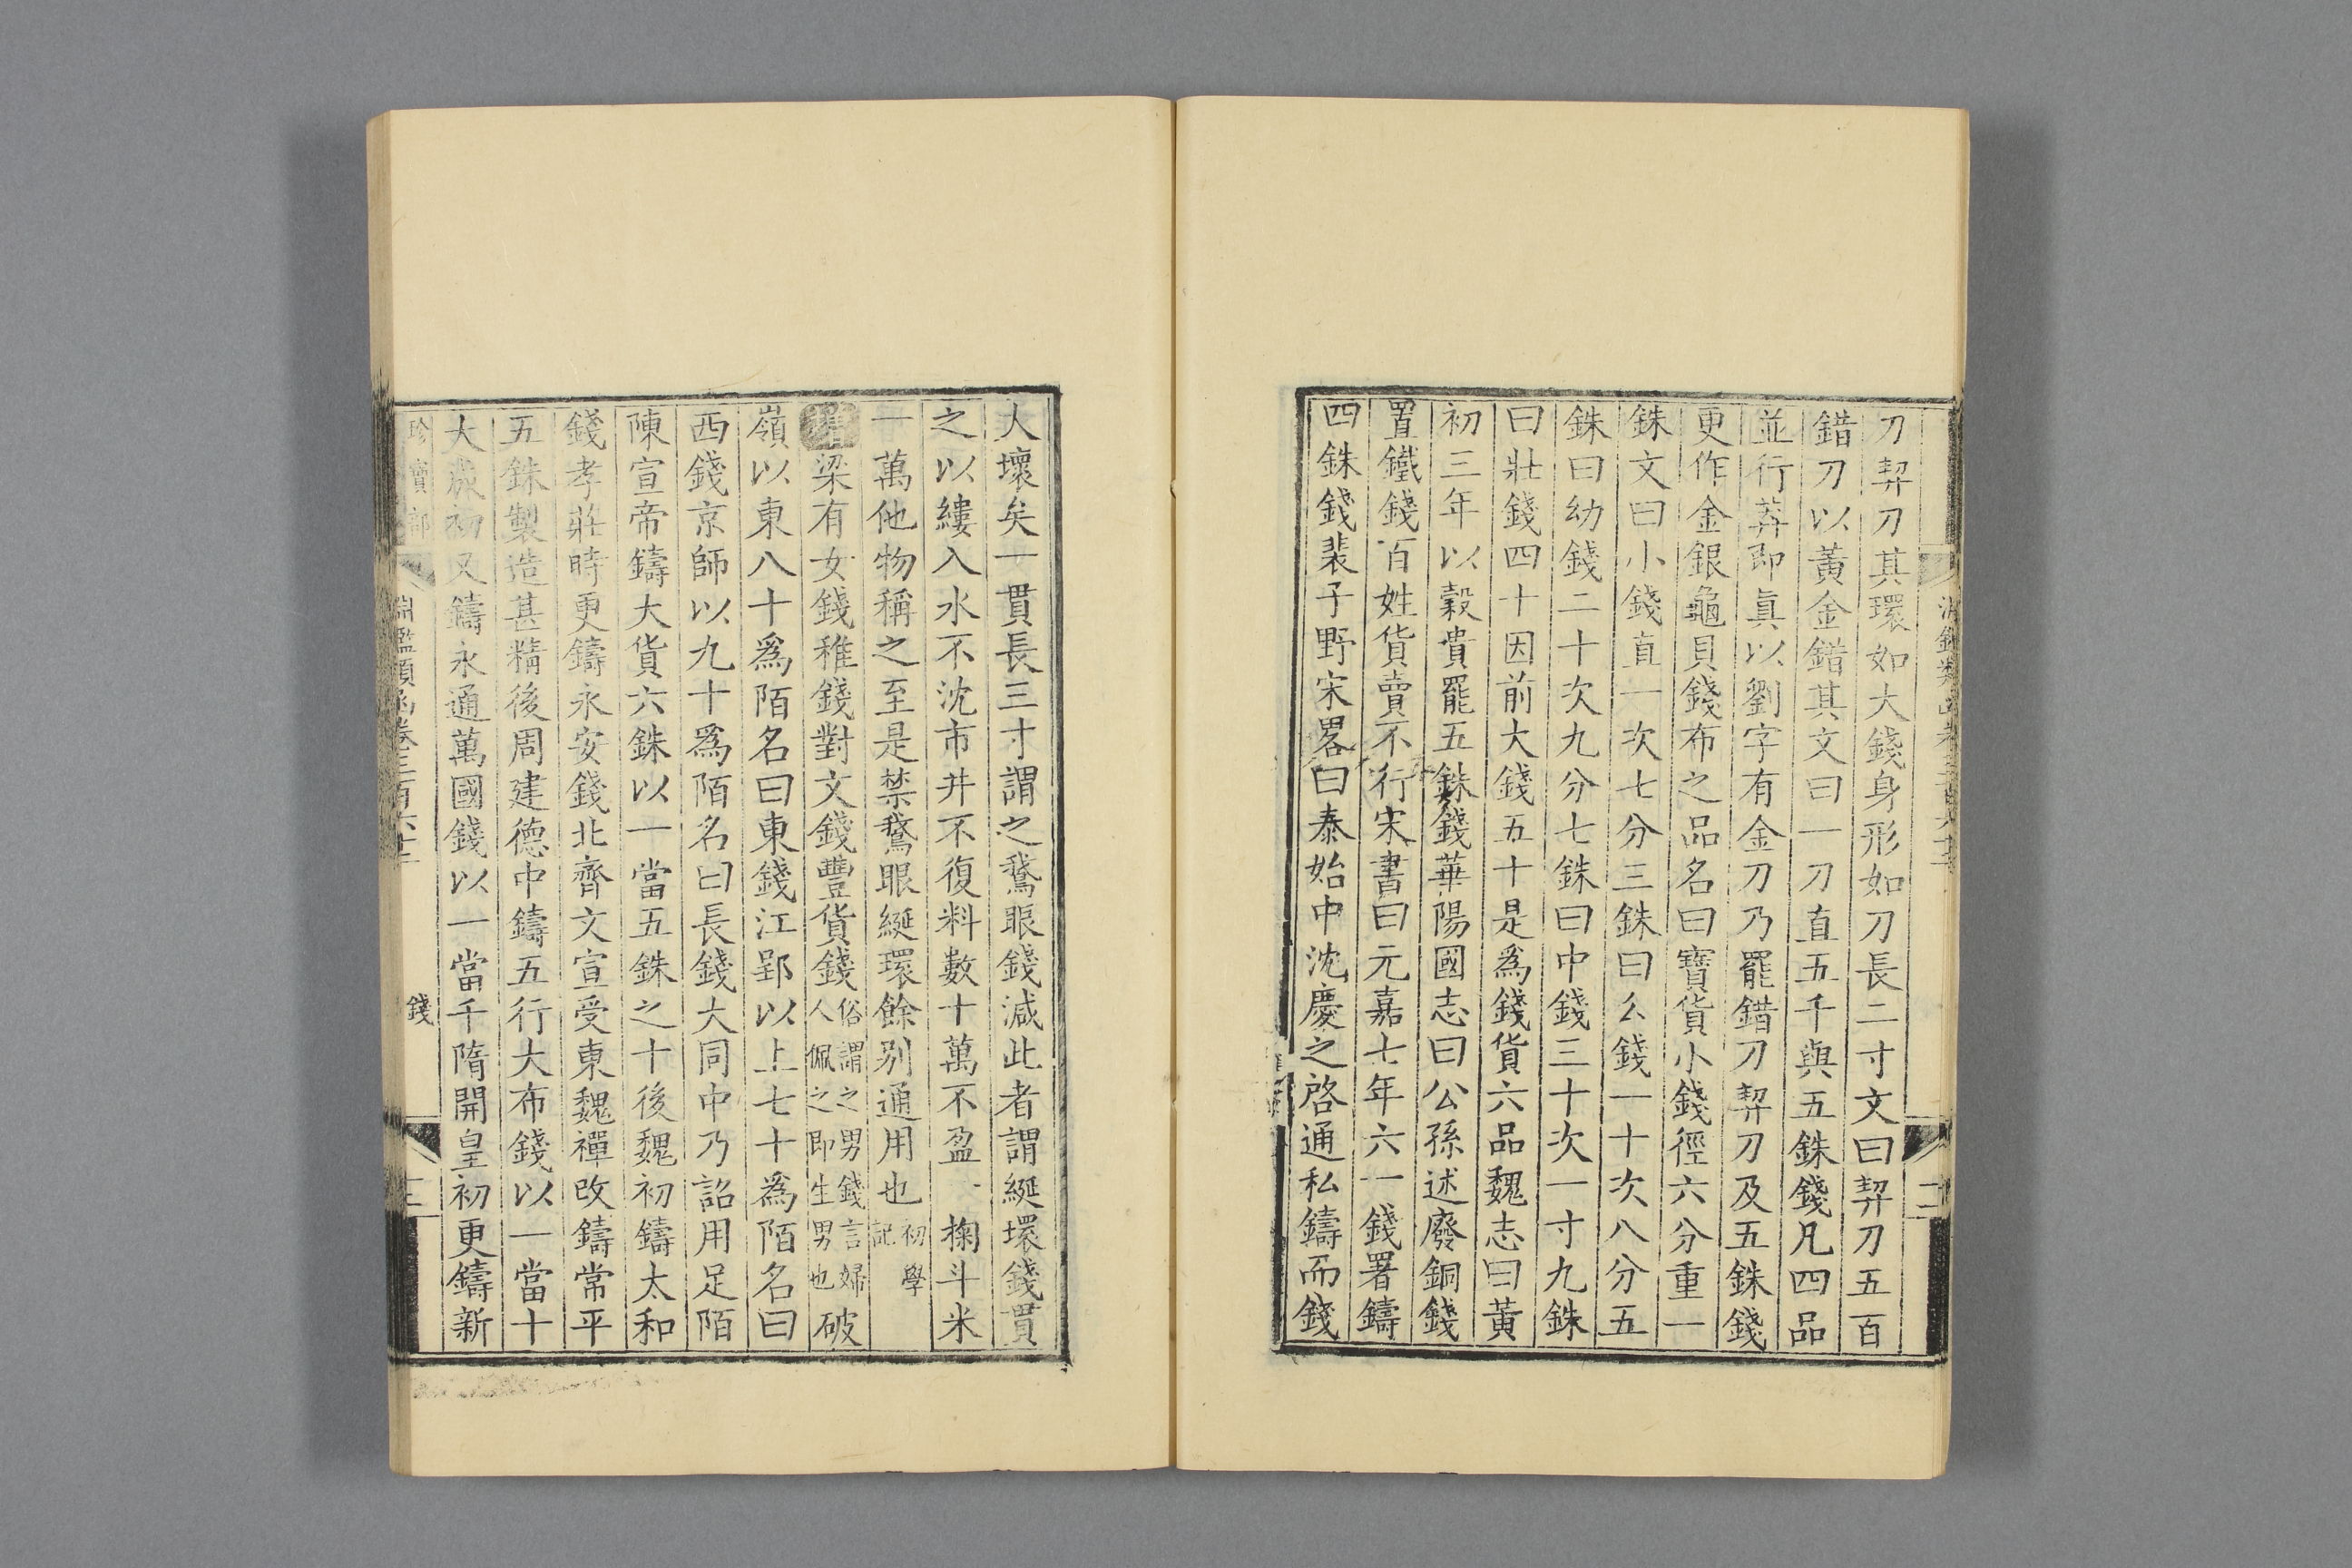 刀契刀其環如大錢身形如刀長二寸文曰契刀五百
錯刀以黃金錯其文曰一刀直五千與五銖錢凡四品
並行莽即眞以劉字有金刀乃罷錯刀契刀及五銖錢
更作金銀龜貝錢布之品名曰寶貨小錢徑六分重一
銖文曰小錢直一次七分三銖曰么錢一十次八分五
銖曰幼錢二十次九分七銖曰中錢三十次一寸九銖
曰壯錢四十因前大錢五十是爲錢貨六品魏志曰黃
初三年以穀貴罷五銖錢華陽國志曰公孫述廢銅錢
置鐵錢百姓貨賣不行宋書曰元嘉七年六一錢署鑄
四銖錢裴子野宋畧曰泰始中沈慶之啓通私鑄而錢
大壞矣一貫長三寸謂之鵞眼錢減此者謂綖環錢貫
之以縷入水不沈市井不復料數十萬不盈一掬斗米
一萬他物稱之至是禁鵞眼綖環餘別通用也初學記
梁有女錢稚錢對文錢豐貨錢俗謂之男錢言婦人佩之即生男也破
嶺以東八十爲陌名曰東錢江郢以上七十爲陌名曰
西錢京師以九十爲陌名曰長錢大同中乃詔用足陌
陳宣帝鑄大貨六銖以一當五銖之十後魏初鑄太和
錢孝莊時更鑄永安錢北齊文宣受東魏禪改鑄常平
五銖製造甚精後周建德中鑄五行大布錢以一當十
大成初又鑄永通萬國錢以一當千隋開皇初更鑄新
珍寶部 淵鑑類函卷三百六十二 錢